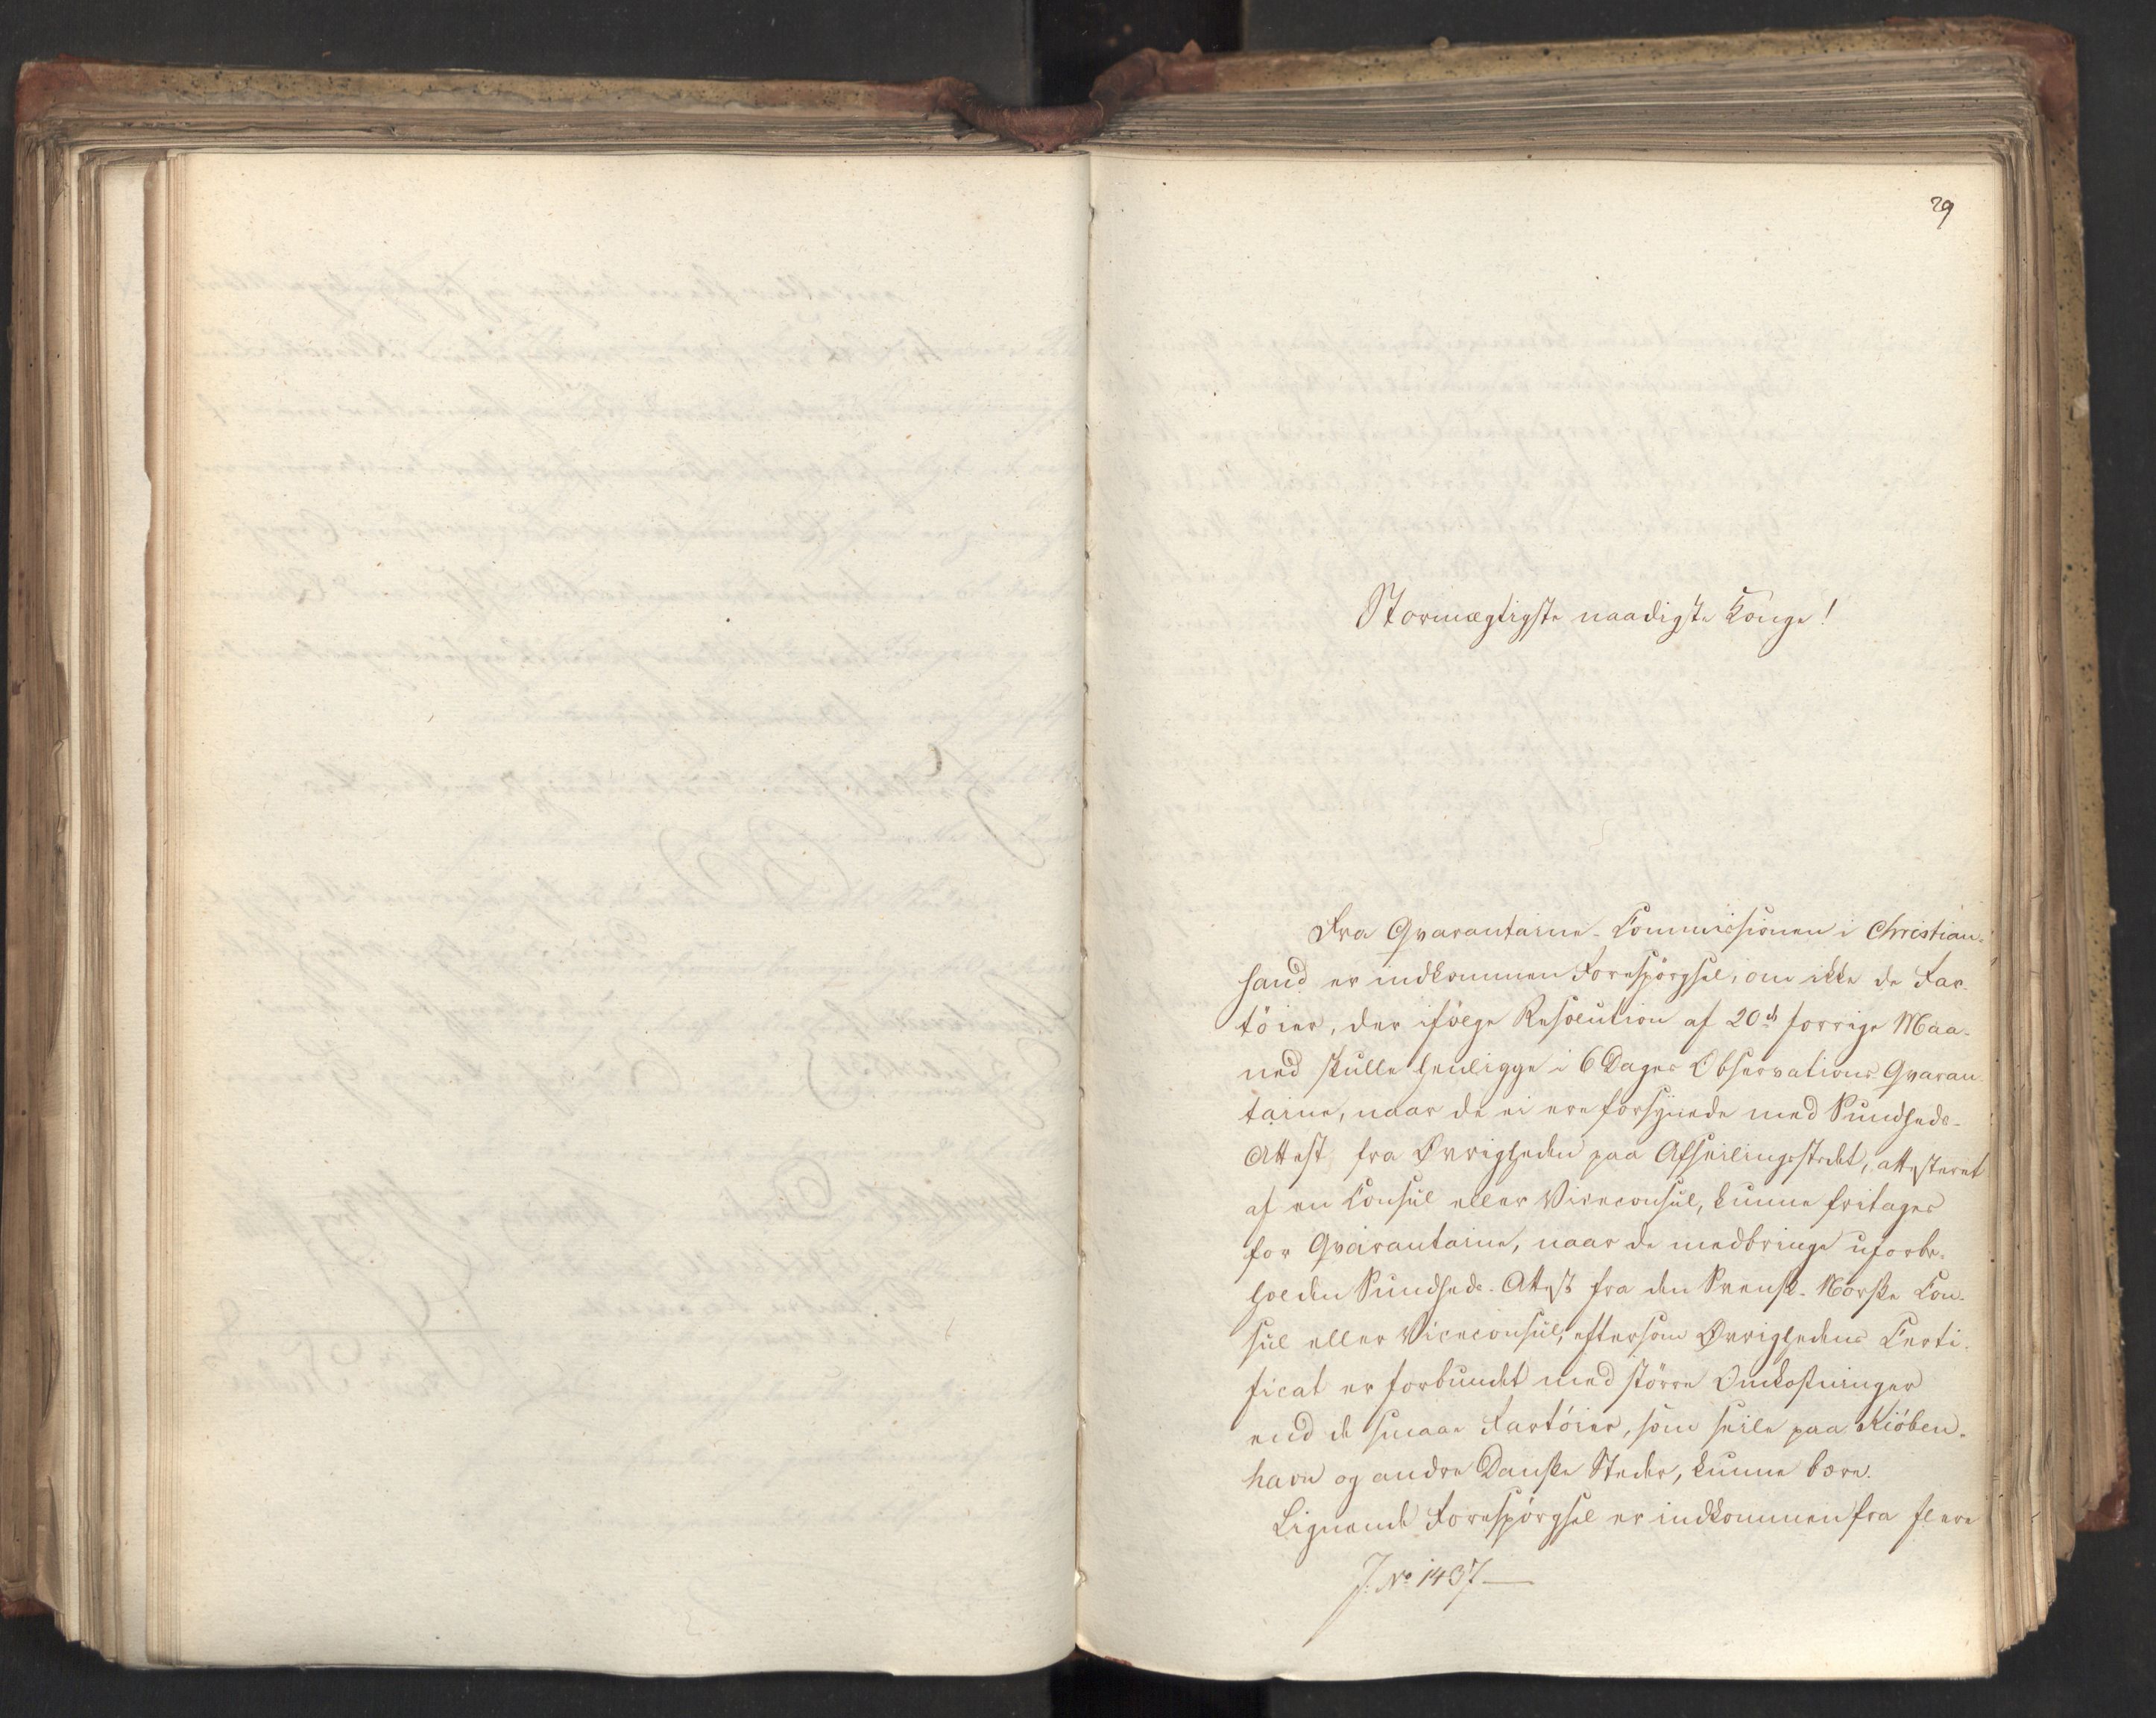 29
Stormægtigste naadigste Konge!
Fra Qvarantaine-Commissionen i Christian-
sand er indkommen Forespörgsel, om ikke de Far-
töier, der ifölge Resolution af 20de forrige Maa-
ned skulle henligge i 6 Dages Observations Qvaran-
taine, naar de ei ere forsynede med Sundheds-
Attest fra Øvrigheden paa Afseilingsstedet, attesteret
af en Consul eller Viceconsul, kunne fritages
for Qvarantaine, naar de medbringe uforbe-
holden Sundheds-Attest fra den Svensk-Norske Con-
sul eller Viceconsul, eftersom Øvrighedens Certi-
ficat er forbundet med större Omkostninger
end de smaae Fartöier, som seile paa Kiöben-
havn og andre Danske Steder, kunne bære.
Lignende Forespörgsel er indkommen fra flere
J. No 1437